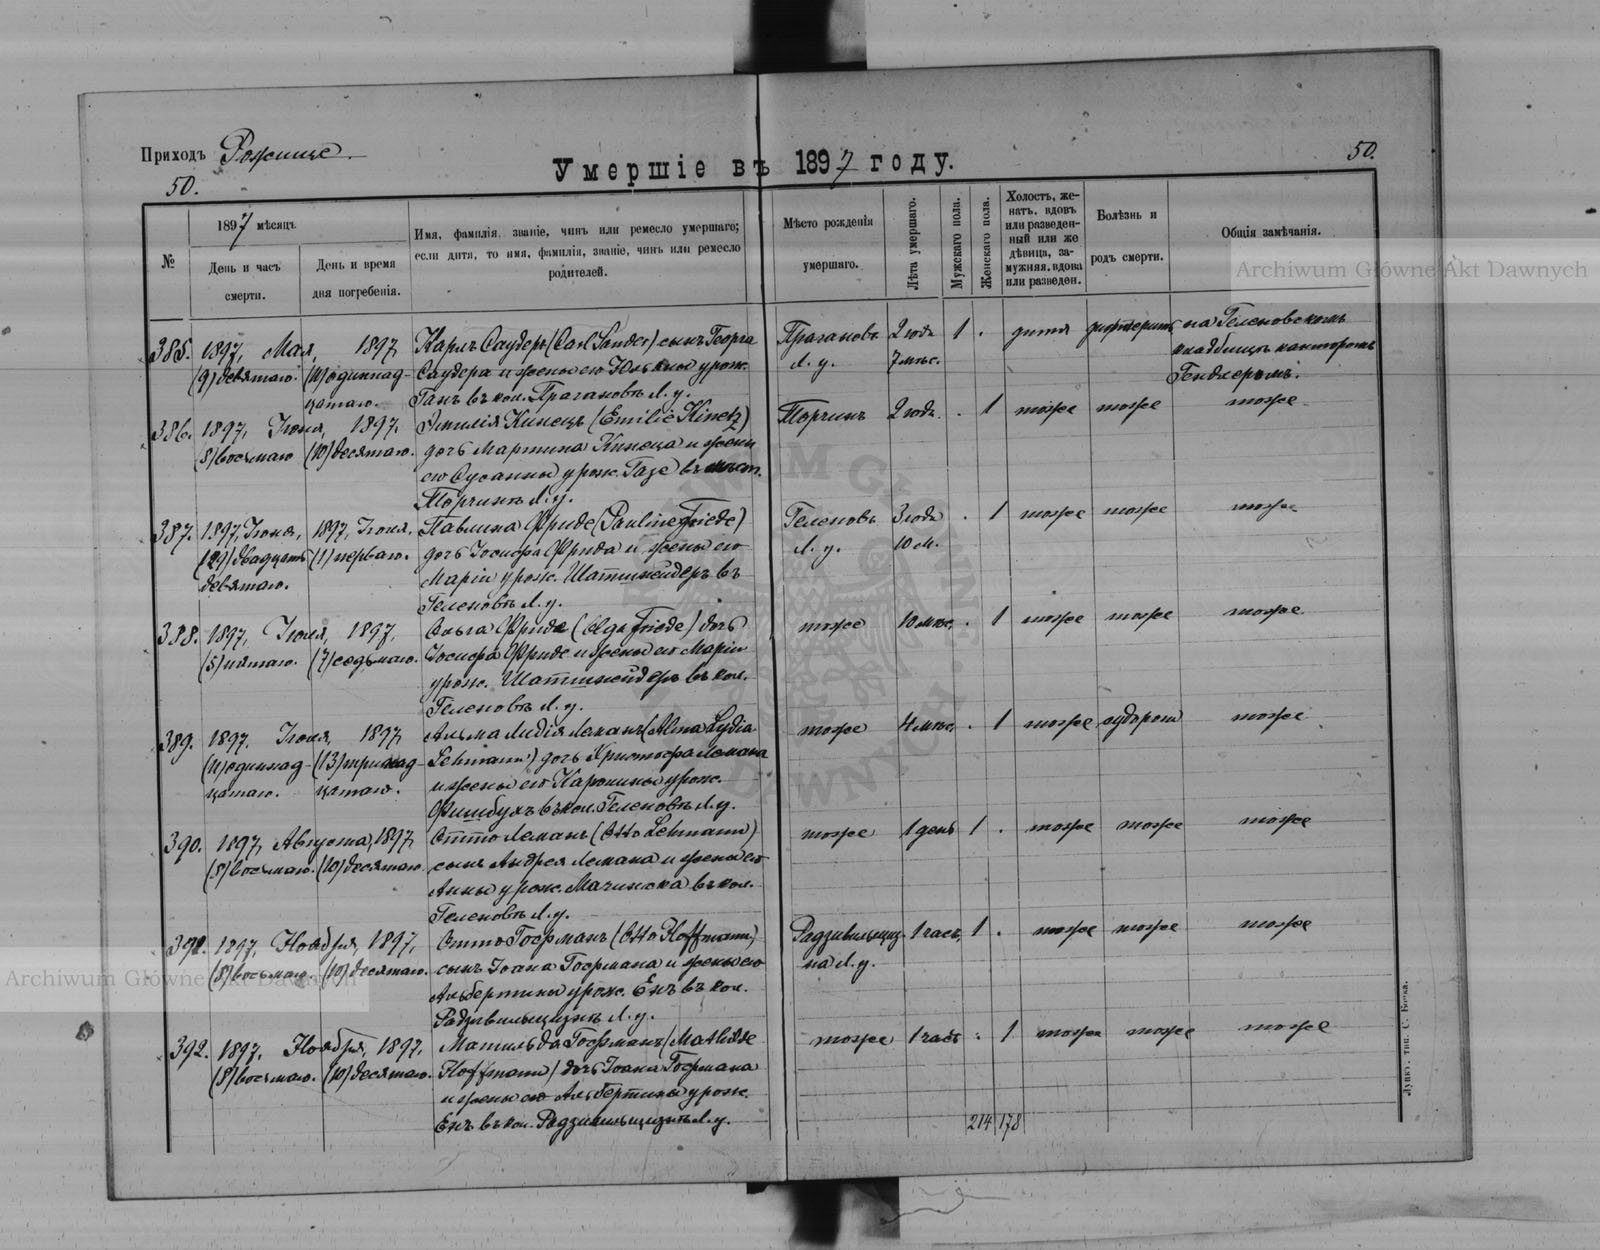 Приходъ Рожище
Умершіе въ 1897 году.
50.
50.
№
1897 мѣсяцъ
День и часъ смерти.
День и время дня погребенія.
Имя, фамилія, званіе, чинъ или ремесло умершаго;
если дитя, то имя, фамилія, званіе, чинъ или ремесло
родителей.
Мѣсто рожденія
умершаго.
Лѣта умершаго.
Мужскаго пола.
Женскаго пола.
Холостъ, же-
натъ. вдовъ
или разведен-
ный или же
дѣвица, за-
мужняя, вдова
или разведен.
Болѣзнь и
родъ смерти.
Общія замѣчанія.
385. 1897, Мая, 1897 Карлъ Саудеръ (Carl Sander) сынъ Георга Прагановъ 2 года 1 . дитя дифтеритъ на Геленовскомъ
(9) девятаго. (11) одиннад- Саудера и жены его Юльяны урож. Л. у. 7 мѣс. кладбищѣ канторомъ
цатаго. Ганъ въ кол. Прагановъ Л. у. Гендлеромъ.
386. 1897, Іюня, 1897. Эмилія Кинецъ (Emilie Kinetz) Торчинъ 2 года . 1 тоже тоже тоже
(8) восьмаго (10) десятаго. дочь Мартина Кинеца и жены
его Сусанны урож. Газе въ мѣст.
Торчинъ Л. у.
387. 1897, Іюня, 1897, Іюля, Павлина Фриде (Pauline Friede) Геленовъ 3 года . 1 тоже тоже тоже
(29) двадцать (1) перваго. дочь Іосифа Фрида и жены его Л. у. 10 м.
девятаго. Маріи урож. Шатшнейдеръ въ
Геленовѣ Л. у.
388. 1897, Іюля, 1897, Ольга Фриде (Olga Friede) дочь тоже 10 мѣс. . 1 тоже тоже тоже
(5) пятаго. (7) седьмаго. Іосифа Фриде и жены его Маріи
урож. Шатшнейдеръ въ кол.
Геленовѣ Л. у.
389. 1897. Іюля, 1897 Альма Лидія Леманъ (Alma Lydia тоже 4 мѣс. . 1 тоже судорога тоже
(11) одиннад- (13) тринад- Lehmann) дочь Христофа Лемана
цатаго. цатаго. и жены его Каролины урож.
Фишбухъ въ кол. Геленовѣ Л. у.
390. 1897, Августа, 1897, Отто Леманъ (Otto Lehmann) тоже 1 день 1 . тоже тоже тоже
(8) восьмаго. (10) десятаго. сынъ Андрея Лемана и жены его
Анны урож. Мачинска въ кол.
Геленовѣ Л. у.
391. 1897, Ноября, 1897, Отто Гофманъ (Otto Hoffmann) Радзивильщиз- 1 часъ 1 . тоже тоже тоже
(8) восьмаго. (10) десятаго. сынъ Іоана Гофмана и жены его на Л. у.
Альбертины урож. Енъ въ кол.
Радзивильщизнѣ Л. у.
392. 1897, Ноября, 1897. Матильда Гофманъ (Mathilde тоже 1 часъ . 1 тоже тоже тоже
(8) восьмаго. (10) десятаго. Hoffmann) дочь Іоана Гофмана
и жены его Альбертины урож.
Енъ въ кол. Радзивильщизнѣ Л. у.
214 178
Archiwum Główne Akt Dawnych
Archiwum Główne Akt Dawnych
ARCHIWUM GŁÓWNE AKT DAWNYCH